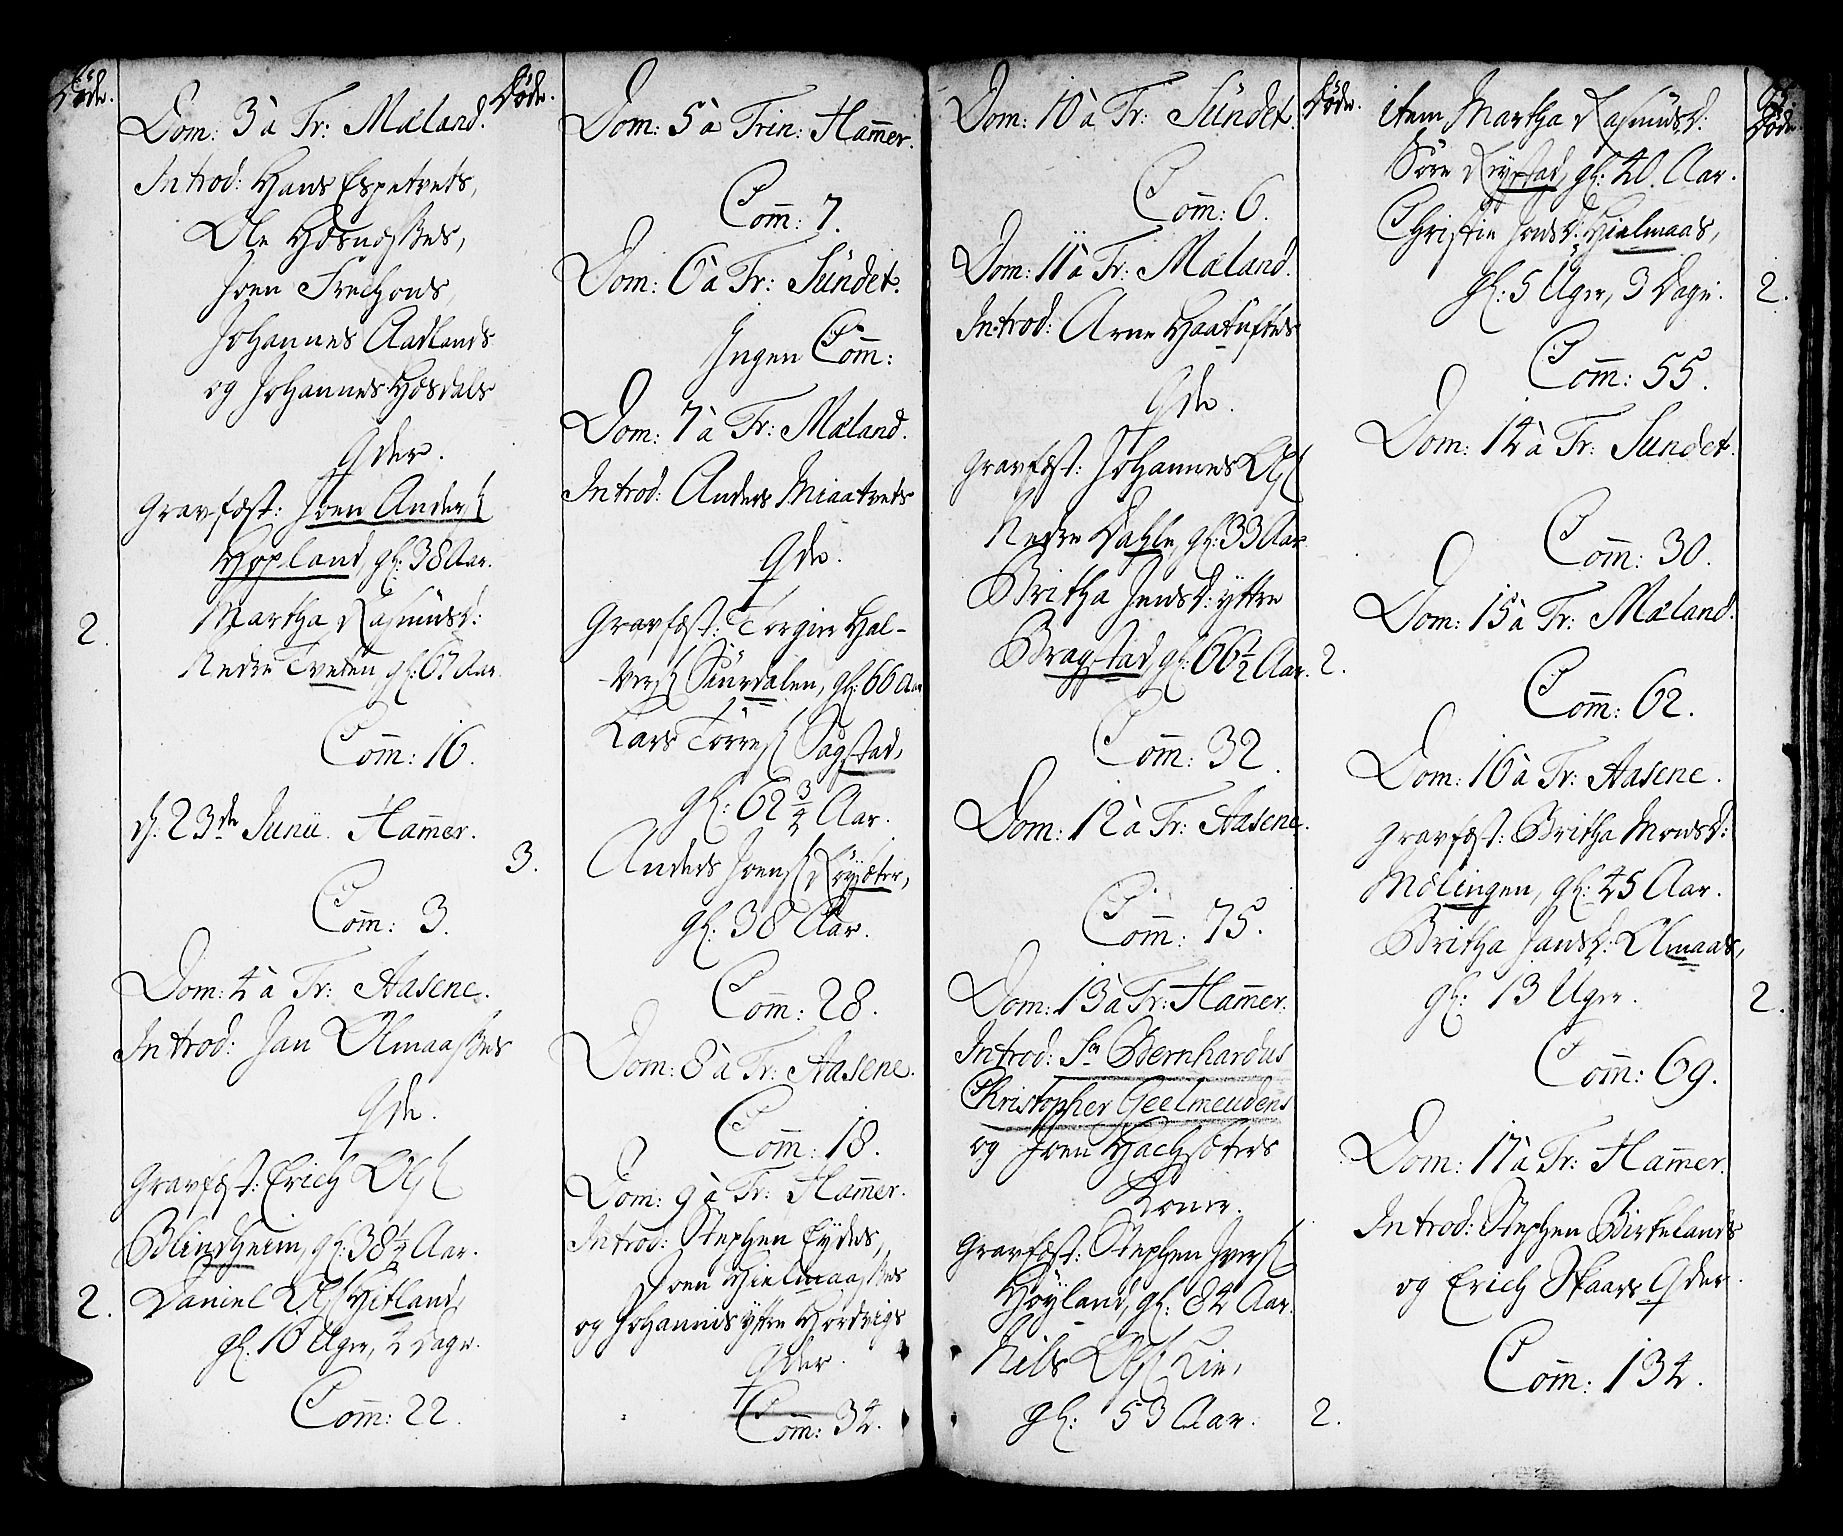 Døde.
Dom: 3 à Tr: Mæland.
Introd: Hans Espetvets,
Ole Hosnæsses,
Joen Frechous,
Johannes Aadlands
og Johannes Hosdals
Qder.
Gravfæst: Joen Anders:
Hopland, gl: 38 Aar.
Martha Rasmusd:
2.
Nedre Tveten gl: 67 Aar
Com̄: 16.
d. 23de Junii. Ham̄er.
Com̄: 3.
Dom: 4 à Tr: Aasene.
Introd: Jan Olmaasses
Qde.
Gravfæst: Erich Ols:
Blindheim, gl: 38½ Aar.
Daniel Ols: Hitland,
2.
gl: 10 Uger, 4 Dage.
Com̄: 22.
Døde.
Dom: 5 à Trin: Ham̄er.
Com̄: 7.
Dom: 6 à Tr: Sundet.
Ingen Com̄:
Dom: 7 à Tr: Mæland.
Introd: Anders Miaatvets
Qde.
Gravfæst: Torgier Hal-
vers: Saurdalen, gl: 66 Aar
Lars Torres: Sagstad,
gl: 62 3/4 Aar.
Anders Joens: Røysæter,
3.
gl: 38 Aar.
Com̄: 28.
Dom: 8 à Tr: Aasene.
Com̄: 18.
Dom: 9 à Tr: Ham̄er.
Introd: Stephen Eydes,
Joen Hielmaasses
og Johannis Yttre Hordvigs
Qder.
Com̄: 34.
Dom: 10 à Tr: Sundet.
Com̄: 6.
Dom: 11 à Tr: Mæland.
Introd: Arne Haatuftes
Qde.
Gravfæst: Johannes Ols:
Nedre Dahle, gl: 33 Aar
Britha Jensd: Yttre
Bragstad gl: 66½ Aar.
2.
Com̄: 32.
Dom: 12 à Tr: Aasene.
Com̄: 75.
Dom: 13 à Tr: Ham̄er.
Introd: Sr Bernhardus
Christopher Geelmeudens
og Joen Hachsæters
Koner.
Gravfæst: Stephen Ivers:
Høyland, gl: 84 Aar.
Nils Ols: Lie,
gl: 53 Aar.
2.
Døde.
item Martha Rasmusd:
Søre Røystad, gl: 40. Aar.
Christie Jonsd: Hielmaas,
gl: 5 Uger, 3 Dage.
2.
Com̄: 55.
Dom: 14 à Tr: Sundet.
Com̄: 30.
Dom: 15 à Tr: Mæland.
Com̄: 62.
Dom: 16 à Tr: Aasene.
Gravfæst: Britha Monsd:
Mølingen, gl: 45 Aar.
Britha Jansd: Olmaas,
gl: 13 Uger.
2.
Com̄: 69.
Dom: 17 à Tr: Ham̄er.
Introd: Stephen Birkelands
og Erich Skaars Qder.
Com̄: 134.
Døde